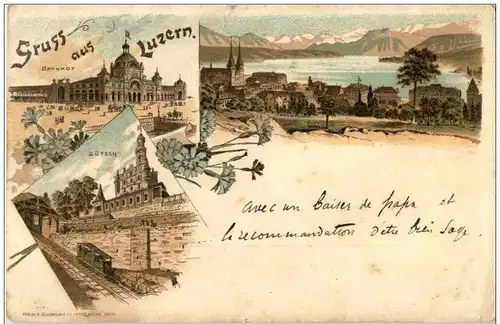 Gruss aus Luzern.
BAHNHOF
GÜTSCH
Avec un baiser de papa et
la recommandation d'etre bien sage.